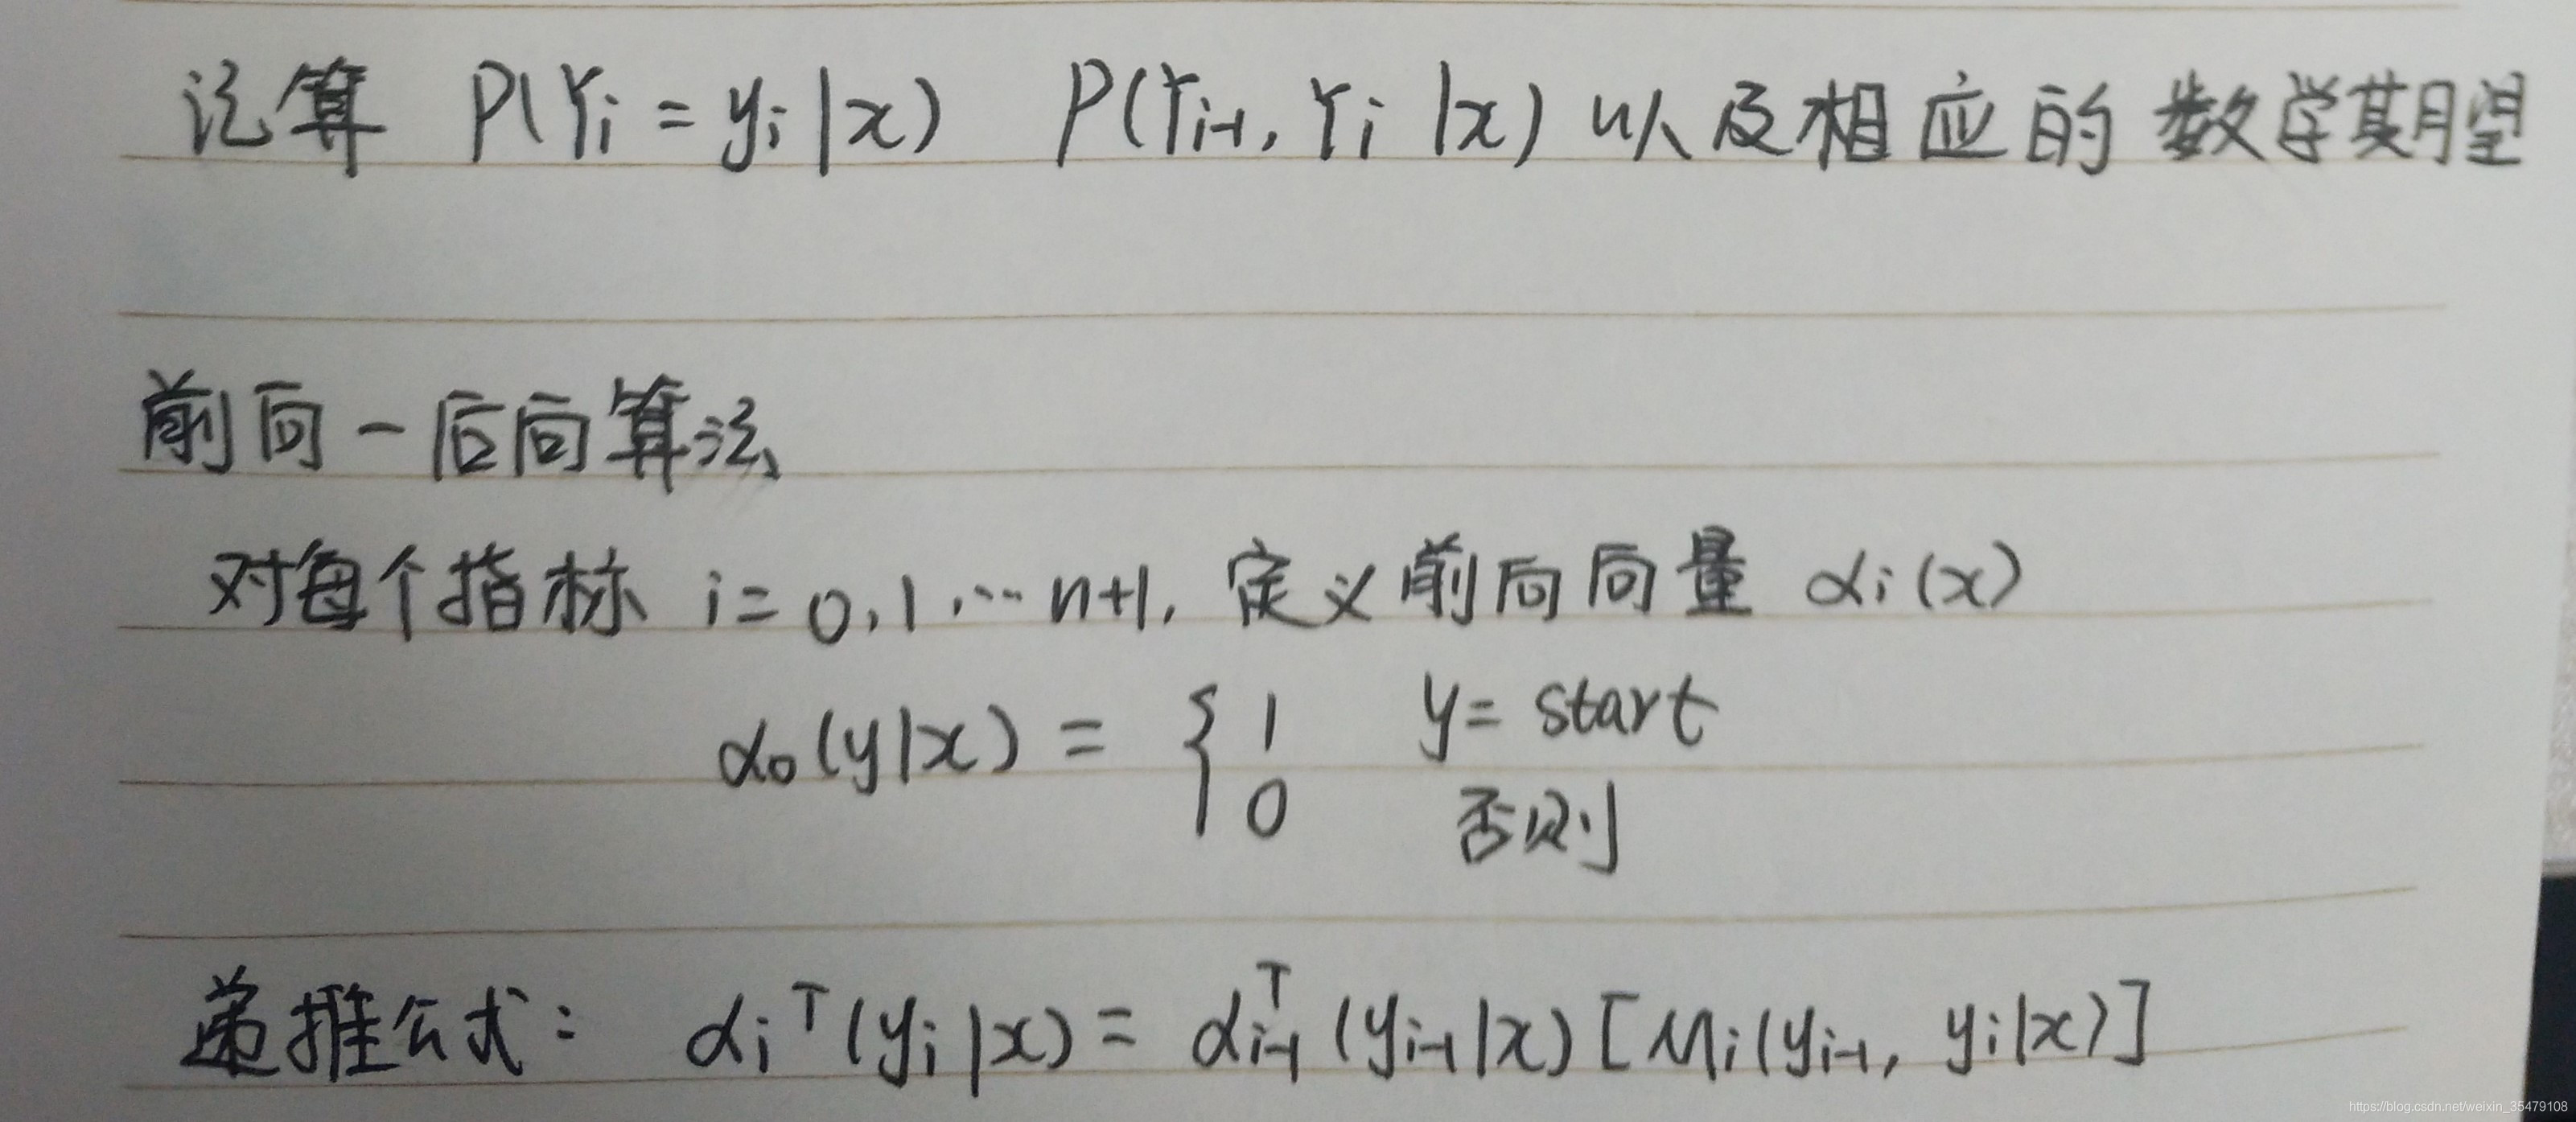 计算 P(Yi = yi|x) P(Yi-1, Yi |x) 以及相应的数学期望
前向-后向算法
对每个指标 i = 0,1,… n+1, 定义前向向量 αi(x)
α0(y|x) = { 1 y = start
0 否则
递推公式: αiᵀ(yi|x) = αi-1ᵀ(yi-1|x)[Mi(yi-1, yi|x)]
https://blog.csdn.net/weixin_35479108